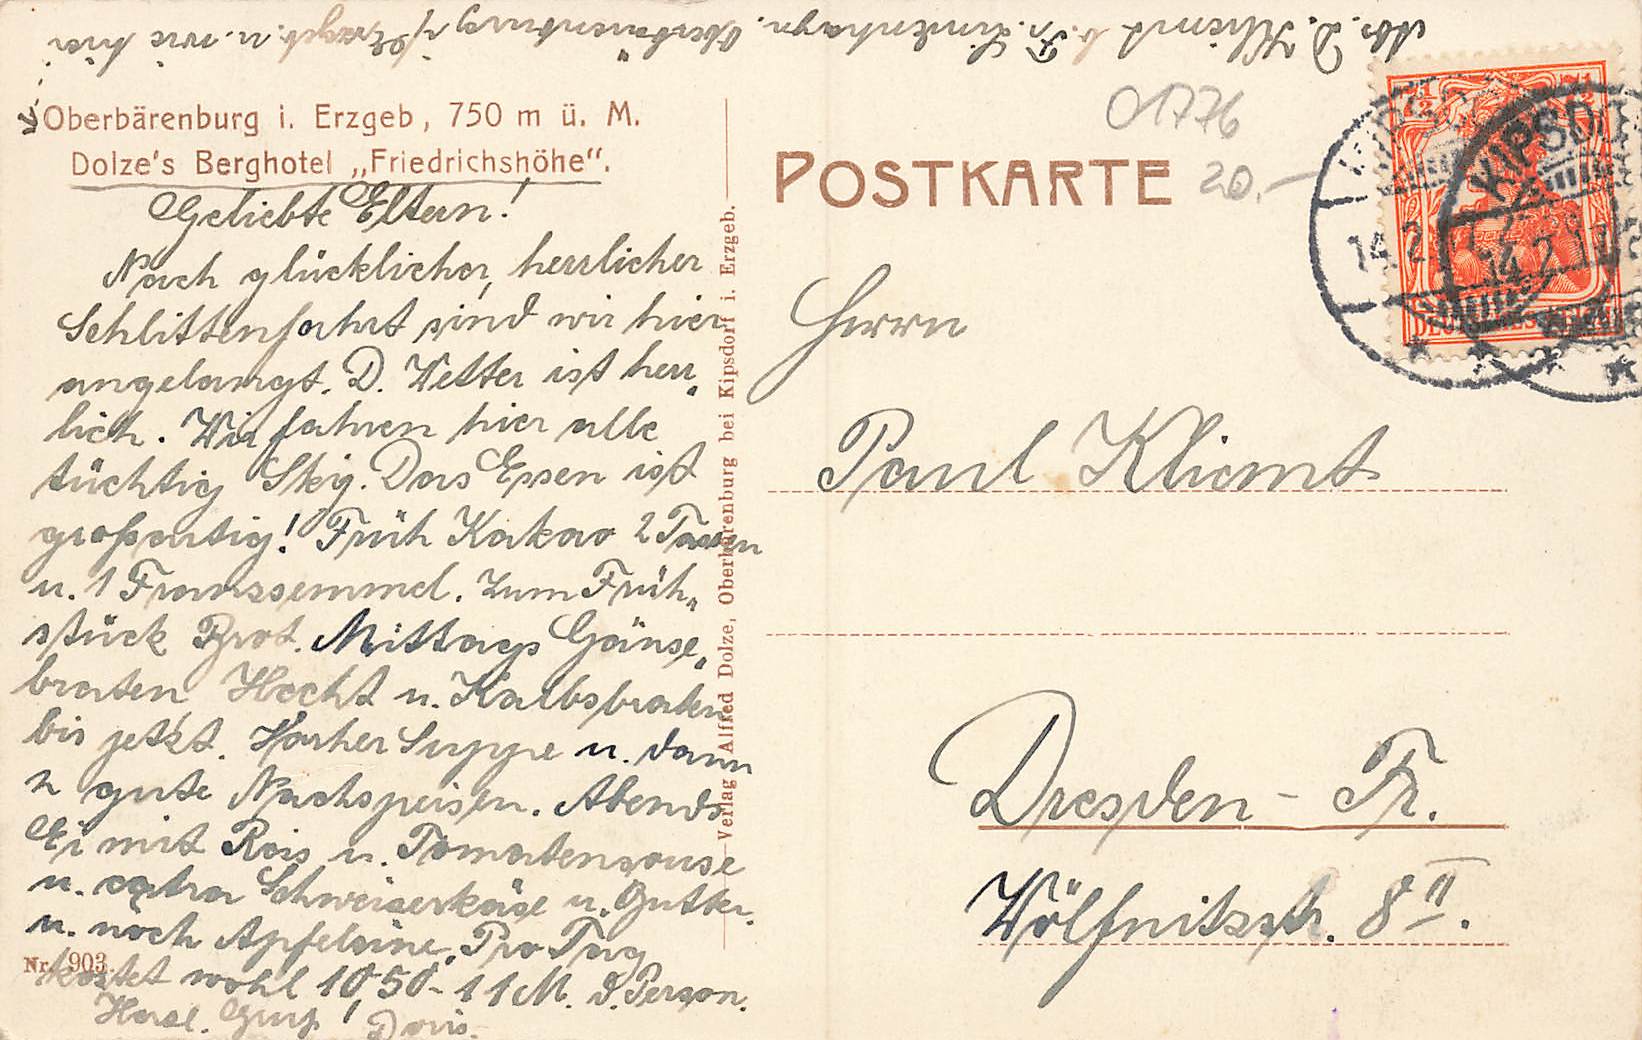 Abs. D. Kliemt b. Fr. Lindenhayn. Oberbärenburg i/Erzgeb. u. wie hier
Oberbärenburg i. Erzgeb, 750 m ü. M.
Dolze's Berghotel „Friedrichshöhe“.
Geliebte Eltern!
Nach glücklicher, herrlicher
Schlittenfahrt sind wir hier
angelangt. D. Wetter ist herr„
lich. Wir fahren hier alle
tüchtig Ski. Das Essen ist
großartig! Früh Kakao 2 Tassen
u. 1 Franzsemmel. Zum Früh„
stück Brot. Mittags Gänse„
braten, Hecht u. Kalbsbraten
bis jetzt. Vorher Suppe u. dann
n gute Nachspeisen. Abends
Ei mit Reis u. Tomatensause
u. extra Schweizerkäse u. Butter.
u. noch Apfelsine. Pro Tag
kostet wohl 10 50 - 11 M. d. Person.
Herzl. Gruß! Doris.
Nr. 903.
Verlag Alfred Dolze, Oberbärenburg bei Kipsdorf i. Erzgeb.
01776
20.-
POSTKARTE
7½ 7½
DEUTSCHES REICH
KIPSDORF
14.2.17
KIPSDORF
14.2.17
Herrn
Paul Kliemt
Dresden - Fr.
Wölfnitzstr. 8 II.